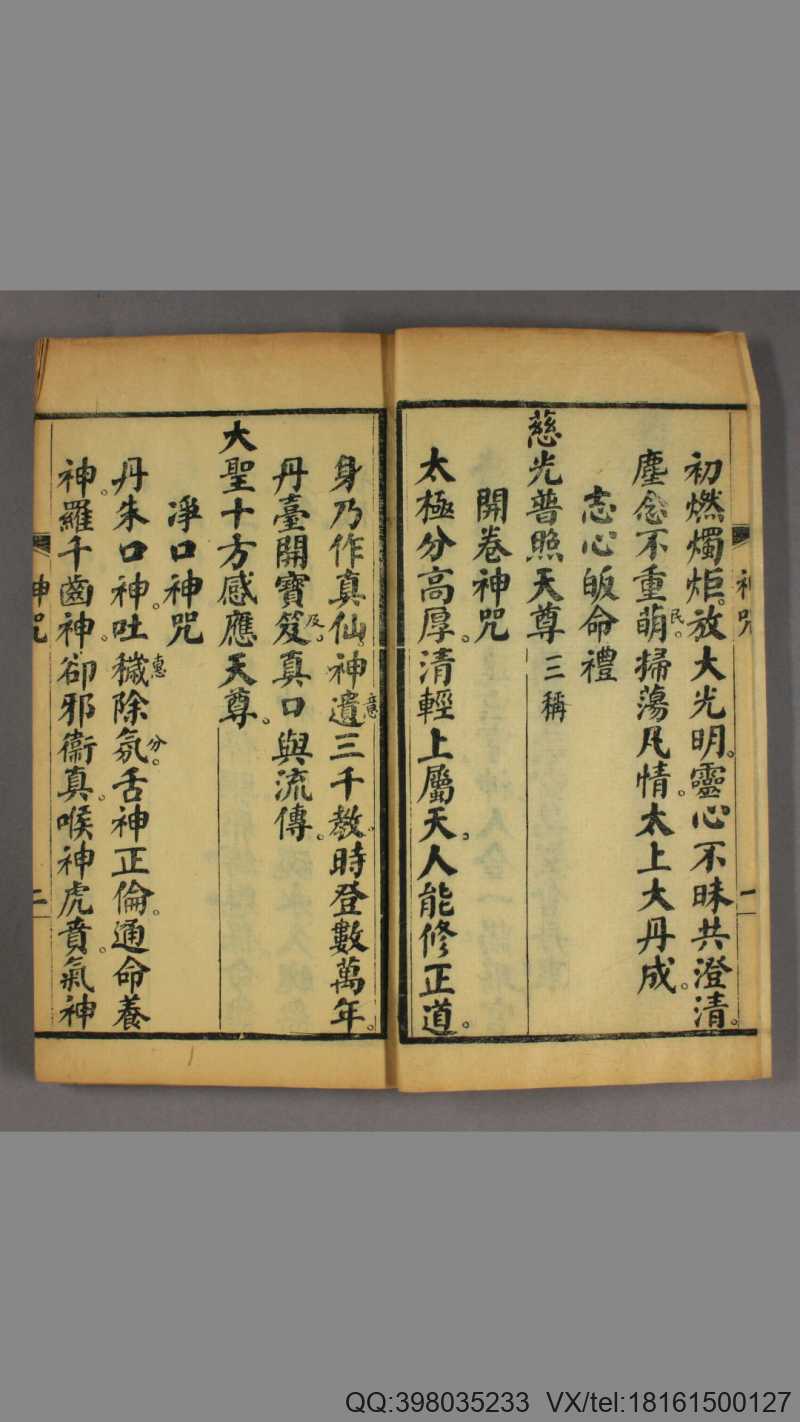 神咒
一
初燃燭炬。放大光明。靈心不昧共澄清。
塵念不重萌民。掃蕩凡情。太上大丹成。
志心皈命禮
慈光普照天尊三稱
開卷神咒
太極分高厚。清輕上屬天。人能修正道。
身乃作真仙。神遺意三千教。時登數萬年。
丹臺開寶笈及。真口與流傳。
大聖十方感應天尊。
淨口神咒
丹朱口神。吐穢惠除氛分。舌神正倫。通命養
神。羅千齒神。卻邪衞真。喉神虎賁。氣神
神咒
二
QQ:398035233 VX/tel:18161500127